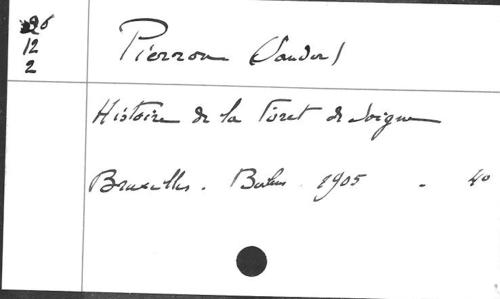 26
12
2
Pierron (Sander)
Histoire de la Foret de Soignes
Bruxelles. Bulens 1905 - 4o